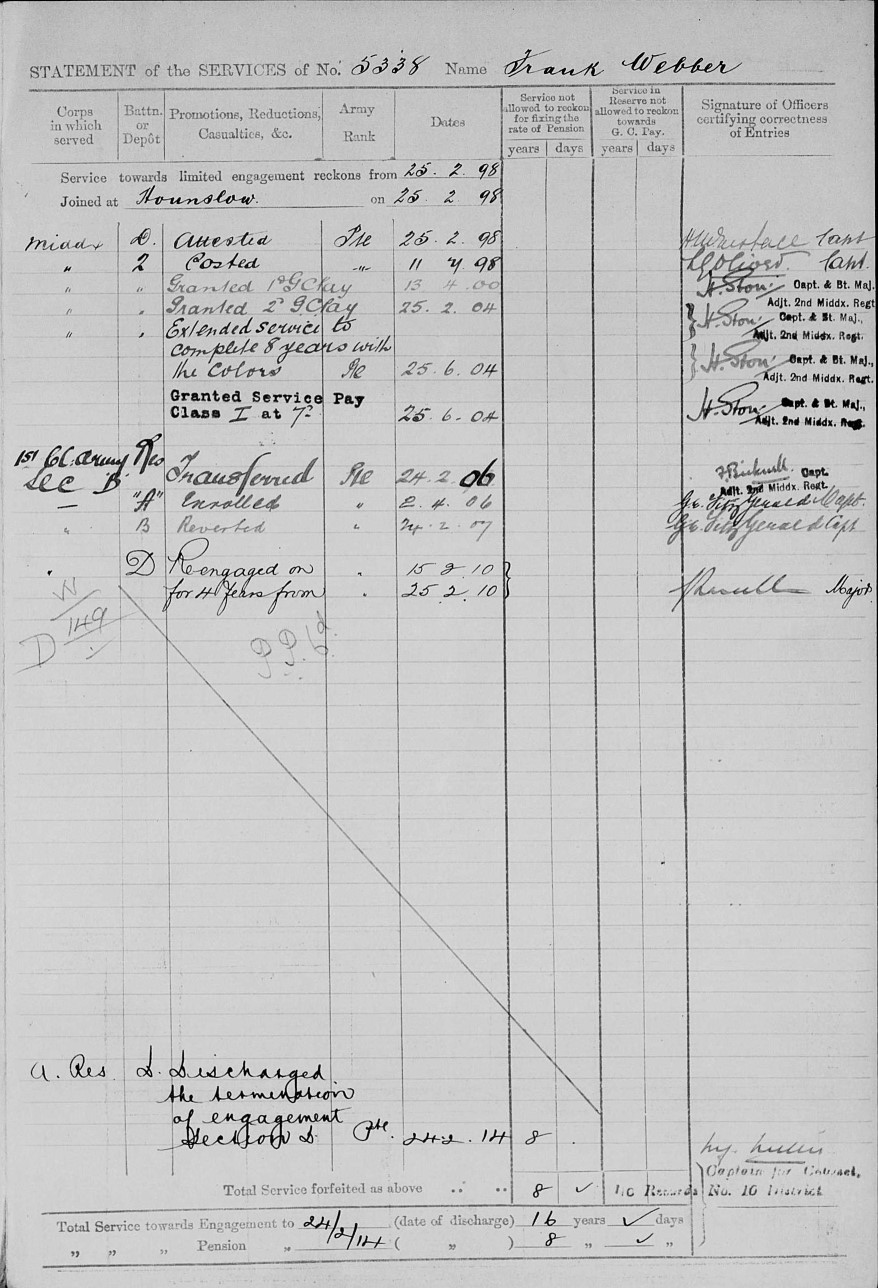 STATEMENT of the SERVICES of No. 5338 Name Frank Webber
Corps in which served
Battn. or Depôt
Promotions, Reductions, Casualties, &c.
Army Rank
Dates
Service not allowed to reckon for fixing the rate of Pension
years days
Service in Reserve not allowed to reckon towards G. C. Pay.
years days
Signature of Officers certifying correctness of Entries
Service towards limited engagement reckons from 25. 2. 98
Joined at Hounslow. on 25 2 98
Middx D. Attested Pte 25. 2. 98 Capt
" 2 Posted " 11 7. 98 Capt.
" " Granted 1st G C Pay 13 4. 00 H. Ston Capt. & Bt. Maj.
Adjt. 2nd Middx. Regt
" " Granted 2d G C Pay 25. 2. 04 H. Ston Capt. & Bt. Maj.,
Adjt. 2nd Middx. Regt.
" " Extended service to
complete 8 years with
the Colors Pte 25. 6. 04 H. Ston Capt. & Bt. Maj.,
Adjt. 2nd Middx. Regt.
Granted Service Pay
Class I at 7d 25. 6. 04 H. Ston Capt. & Bt. Maj.,
Adjt. 2nd Middx. Regt.
1st Cl. Army Res
Sec "B" Transferred Pte 24. 2. 06 F. Bicknell Capt.
Adjt. 2nd Middx. Regt.
— "A" Enrolled " 2. 4. 06 FitzGerald Capt.
" B Reverted " 24. 2. 07 FitzGerald Capt
" D Re-engaged on " 15 2. 10
for 4 Years from " 25 2. 10 Major
W
D 149
P.P. 6d.
A. Res. D. Discharged
the termination
of engagement
Section D. Pte. 24 2. 14 8
Captain for Colonel,
Total Service forfeited as above .. .. 8 ✓ i/c Records No. 10 District
Total Service towards Engagement to 24/2/14 (date of discharge) 16 years ✓ days
" " " Pension " ( " ) 8 " ✓ "